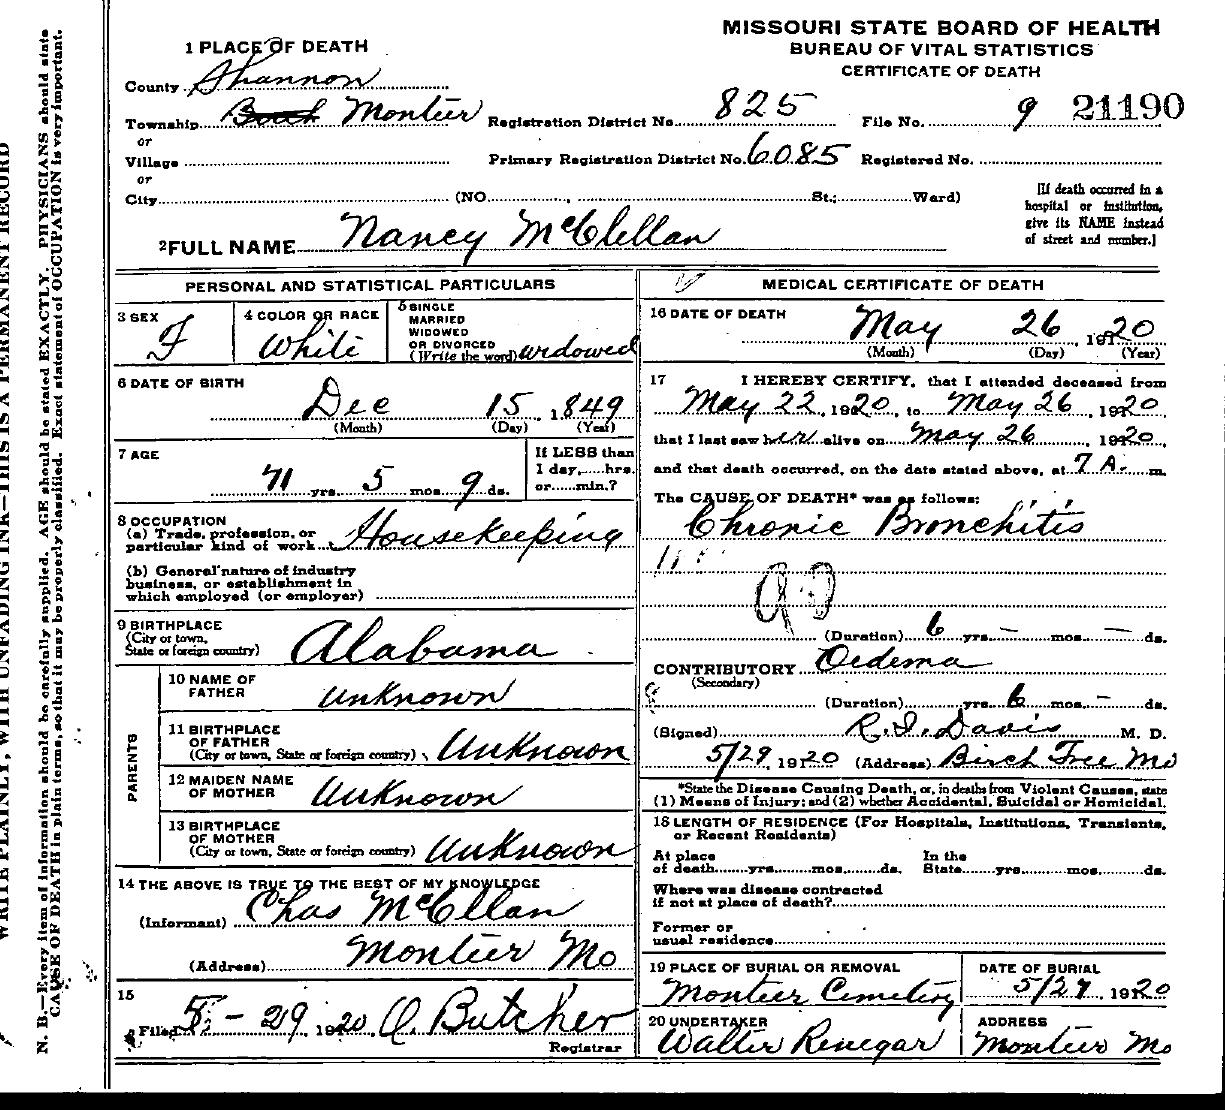 MISSOURI STATE BOARD OF HEALTH
BUREAU OF VITAL STATISTICS
CERTIFICATE OF DEATH
1 PLACE OF DEATH
County Shannon
Township Montier Registration District No. 825 File No. 9 21190
or
Village Primary Registration District No. 6085 Registered No.
or
City (NO. , St.; Ward)
[If death occurred in a
hospital or institution,
give its NAME instead
of street and number.]
2 FULL NAME Nancy McClellan
PERSONAL AND STATISTICAL PARTICULARS
3 SEX
F
4 COLOR OR RACE
White
5 SINGLE
MARRIED
WIDOWED
OR DIVORCED
(Write the word) widowed
6 DATE OF BIRTH
Dec 15, 1849
(Month) (Day) (Year)
7 AGE
71 yrs. 5 mos. 9 ds.
If LESS than
1 day,......hrs.
or......min.?
8 OCCUPATION
(a) Trade, profession, or
particular kind of work Housekeeping
(b) General nature of industry
business, or establishment in
which employed (or employer)
9 BIRTHPLACE
(City or town,
State or foreign country) Alabama
PARENTS
10 NAME OF
FATHER unknown
11 BIRTHPLACE
OF FATHER
(City or town, State or foreign country) Unknown
12 MAIDEN NAME
OF MOTHER Unknown
13 BIRTHPLACE
OF MOTHER
(City or town, State or foreign country) Unknown
14 THE ABOVE IS TRUE TO THE BEST OF MY KNOWLEDGE
(Informant) Chas McCllan
(Address) Montier Mo
15
Filed 5 - 29 1920 O. Butcher
Registrar
MEDICAL CERTIFICATE OF DEATH
16 DATE OF DEATH May 26, 1920
(Month) (Day) (Year)
17 I HEREBY CERTIFY, that I attended deceased from
May 22, 1920, to May 26, 1920
that I last saw her alive on May 26, 1920,
and that death occurred, on the date stated above, at 7 A. m.
The CAUSE OF DEATH* was as follows:
Chronic Bronchitis
90
(Duration) 6 yrs. — mos. — ds.
CONTRIBUTORY Oedema
(Secondary)
(Duration) yrs. 6 mos. — ds.
(Signed) R. I. Davis M. D.
5/29, 1920 (Address) Birch Tree Mo
*State the Disease Causing Death, or, in deaths from Violent Causes, state
(1) Means of Injury; and (2) whether Accidental, Suicidal or Homicidal.
18 LENGTH OF RESIDENCE (For Hospitals, Institutions, Transients,
or Recent Residents)
At place In the
of death......yrs......mos......ds. State......yrs......mos......ds.
Where was disease contracted
if not at place of death?
Former or
usual residence
19 PLACE OF BURIAL OR REMOVAL
Montier Cemetery
DATE OF BURIAL
5/27, 1920
20 UNDERTAKER
Walter Renegar
ADDRESS
Montier Mo
WRITE PLAINLY, WITH UNFADING INK—THIS IS A PERMANENT RECORD
N. B.—Every item of information should be carefully supplied. AGE should be stated EXACTLY. PHYSICIANS should state
CAUSE OF DEATH in plain terms, so that it may be properly classified. Exact statement of OCCUPATION is very important.